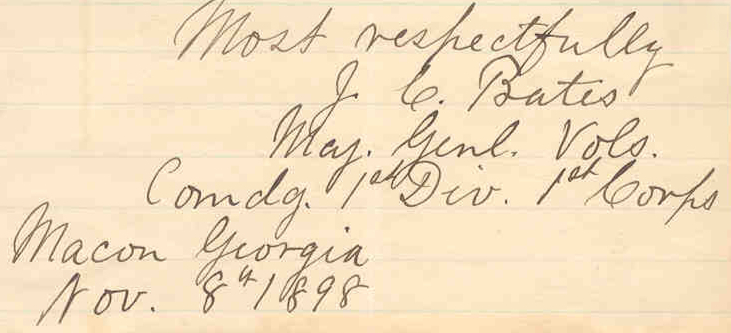 Most respectfully
J. C. Bates
Maj. Genl. Vols.
Comdg. 1st Div. 1st Corps
Macon Georgia
Nov. 8th 1898